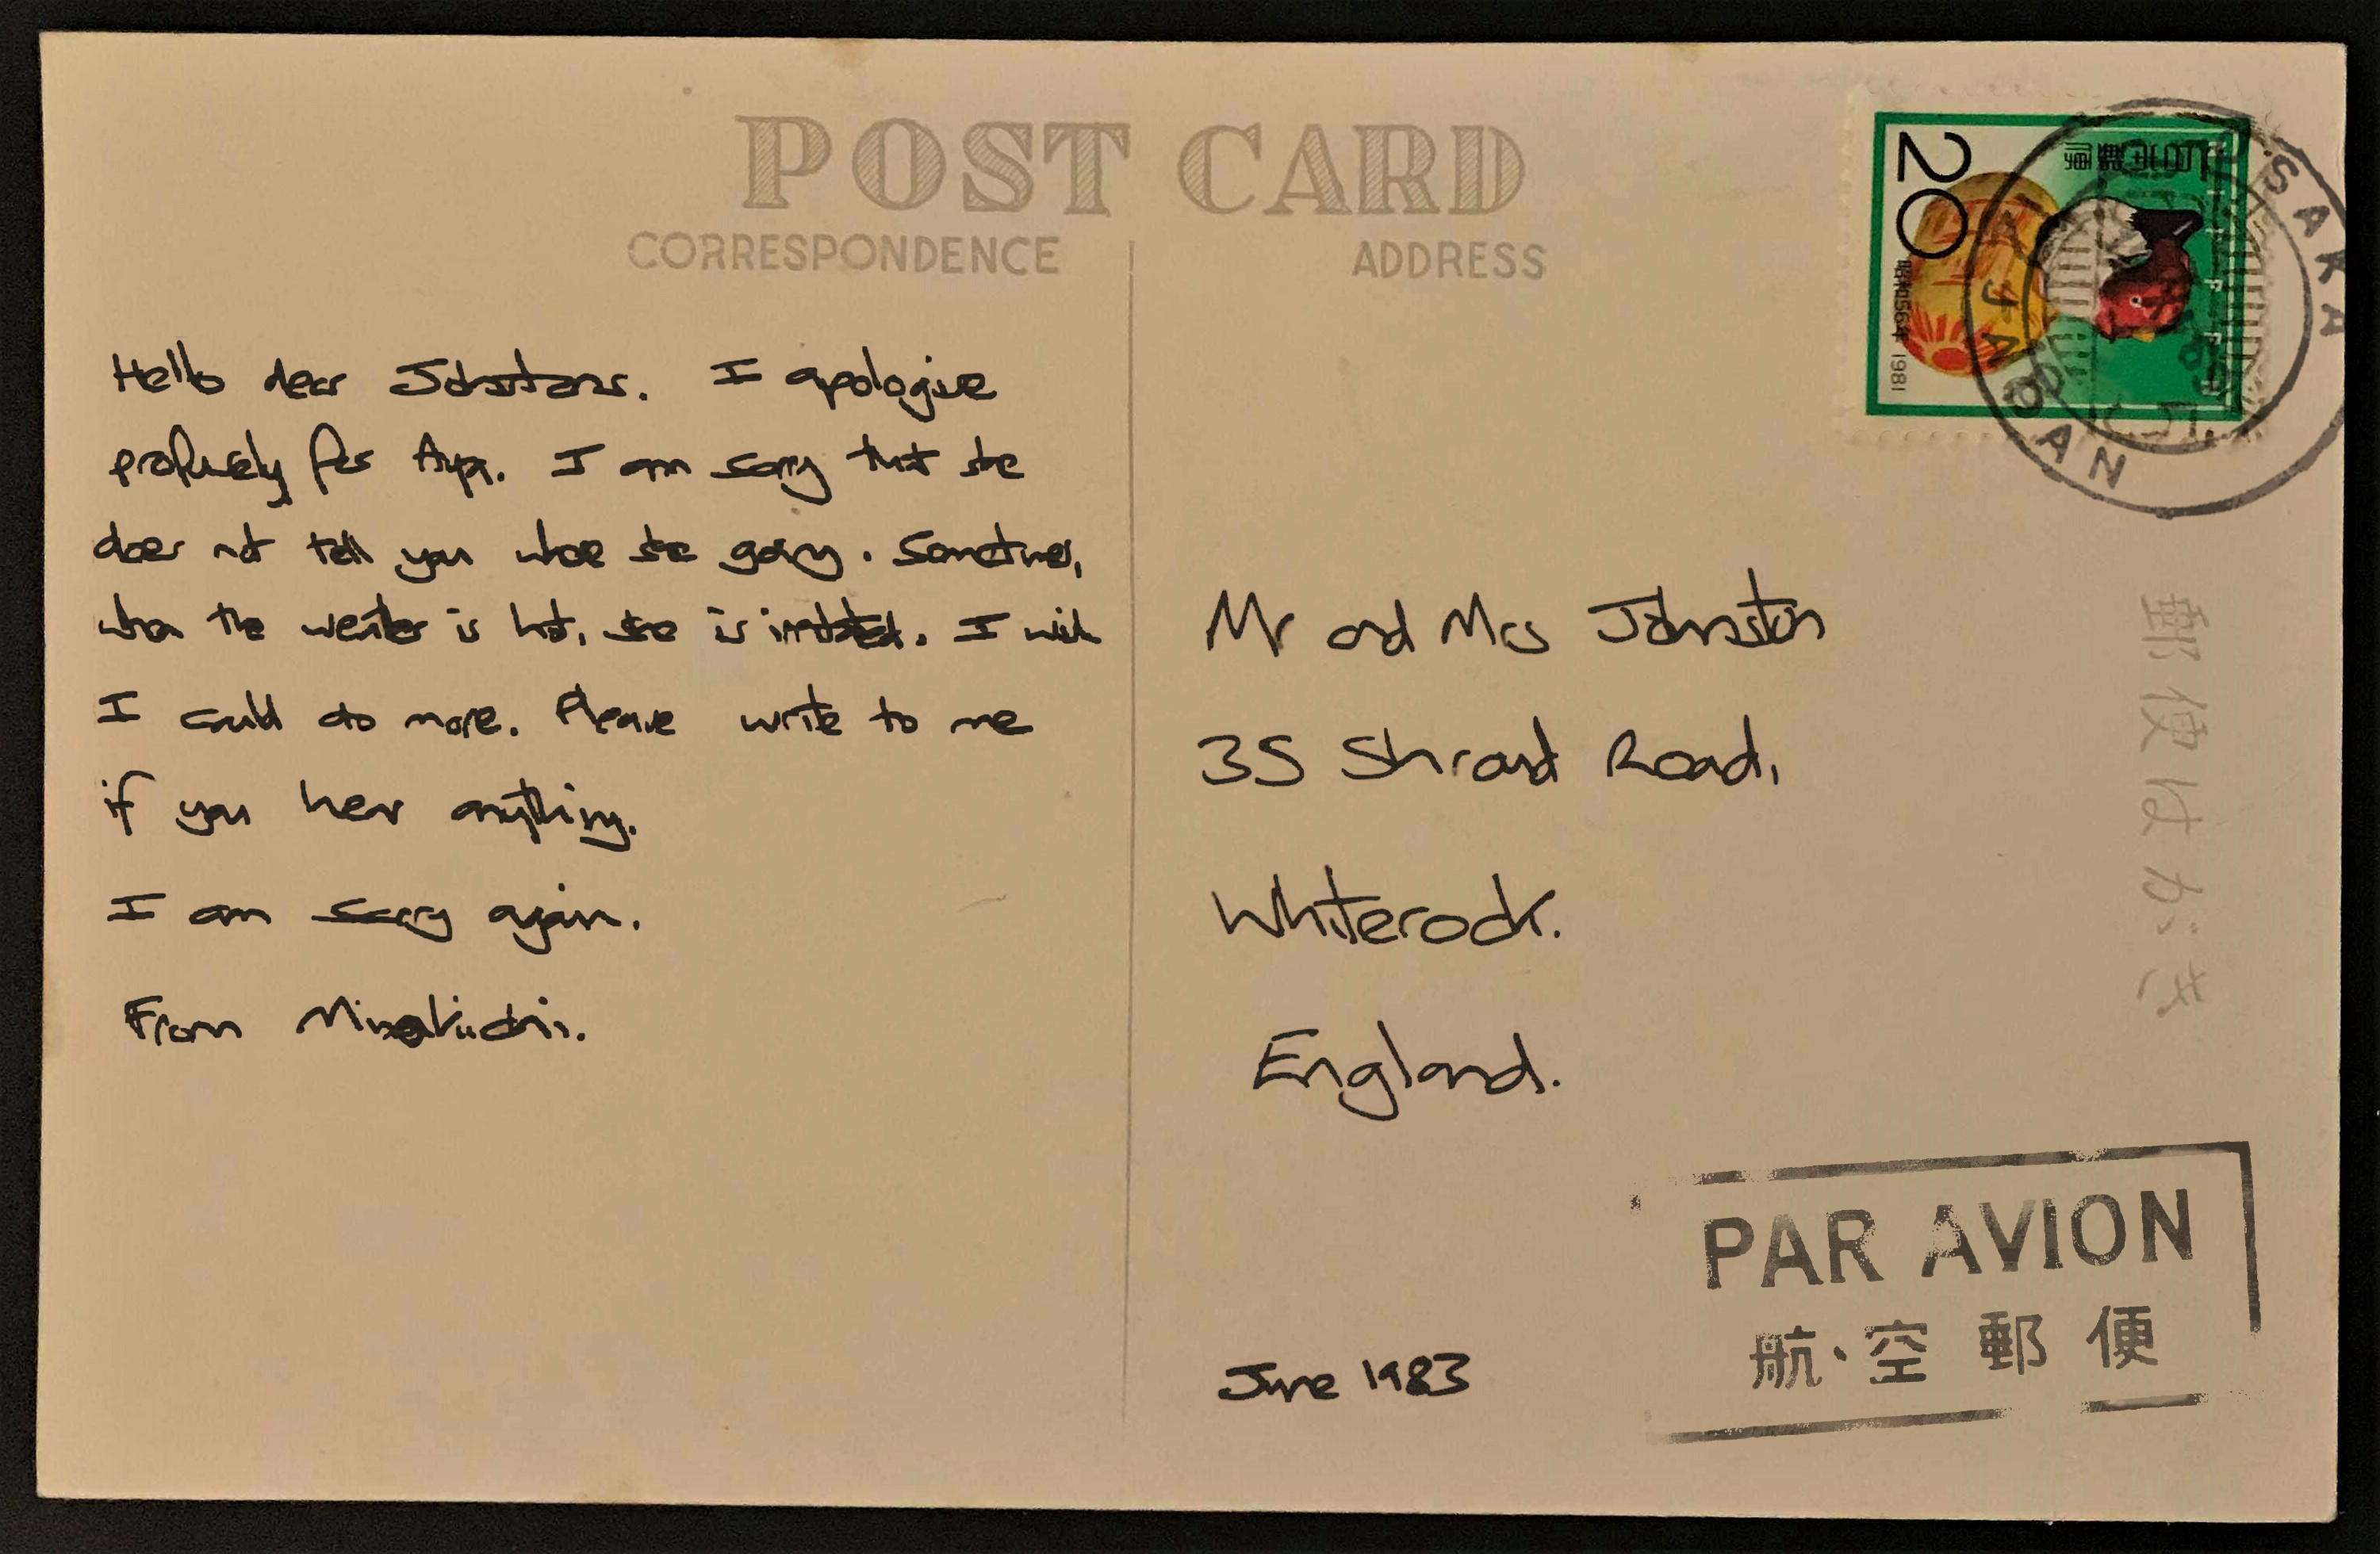 POST CARD
CORRESPONDENCE
ADDRESS
Hello dear Johnstons. I apologise
profusely for Aya. I am sorry that she
does not tell you where she going. Sometimes,
when the weather is hot, she is irritated. I wish
I could do more. Please write to me
if you hear anything.
I am sorry again.
From
20
昭和56年 1981
日本郵便
NIPPON
OSAKA
JAPAN
Mr and Mrs Johnston
35 Shroud Road,
Whiterock.
England.
郵便はがき
PAR AVION
航空郵便
June 1983